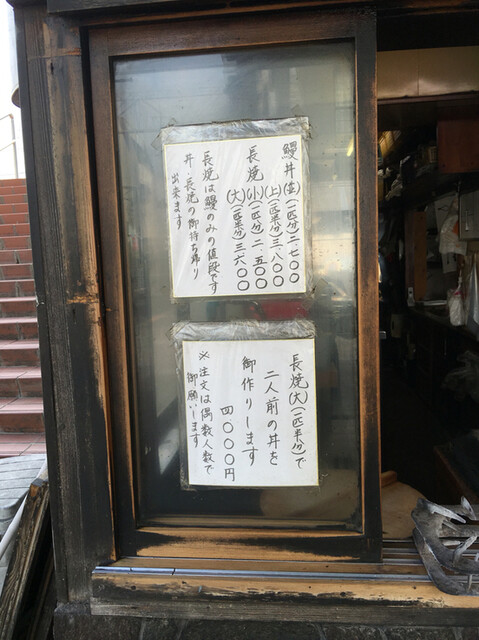 鰻丼(並)(一匹分)二.七〇〇
(上)(一匹半分)三.八〇〇
長焼(小)(一匹分)二.五〇〇
(大)(一匹半分)三六〇〇
長焼は鰻のみの値段です
丼.長焼の御持ち帰り
出来ます
長焼(大)(一匹半分)で
二人前の丼を
御作りします
四〇〇〇円
※注文は偶数人数で
御願いします